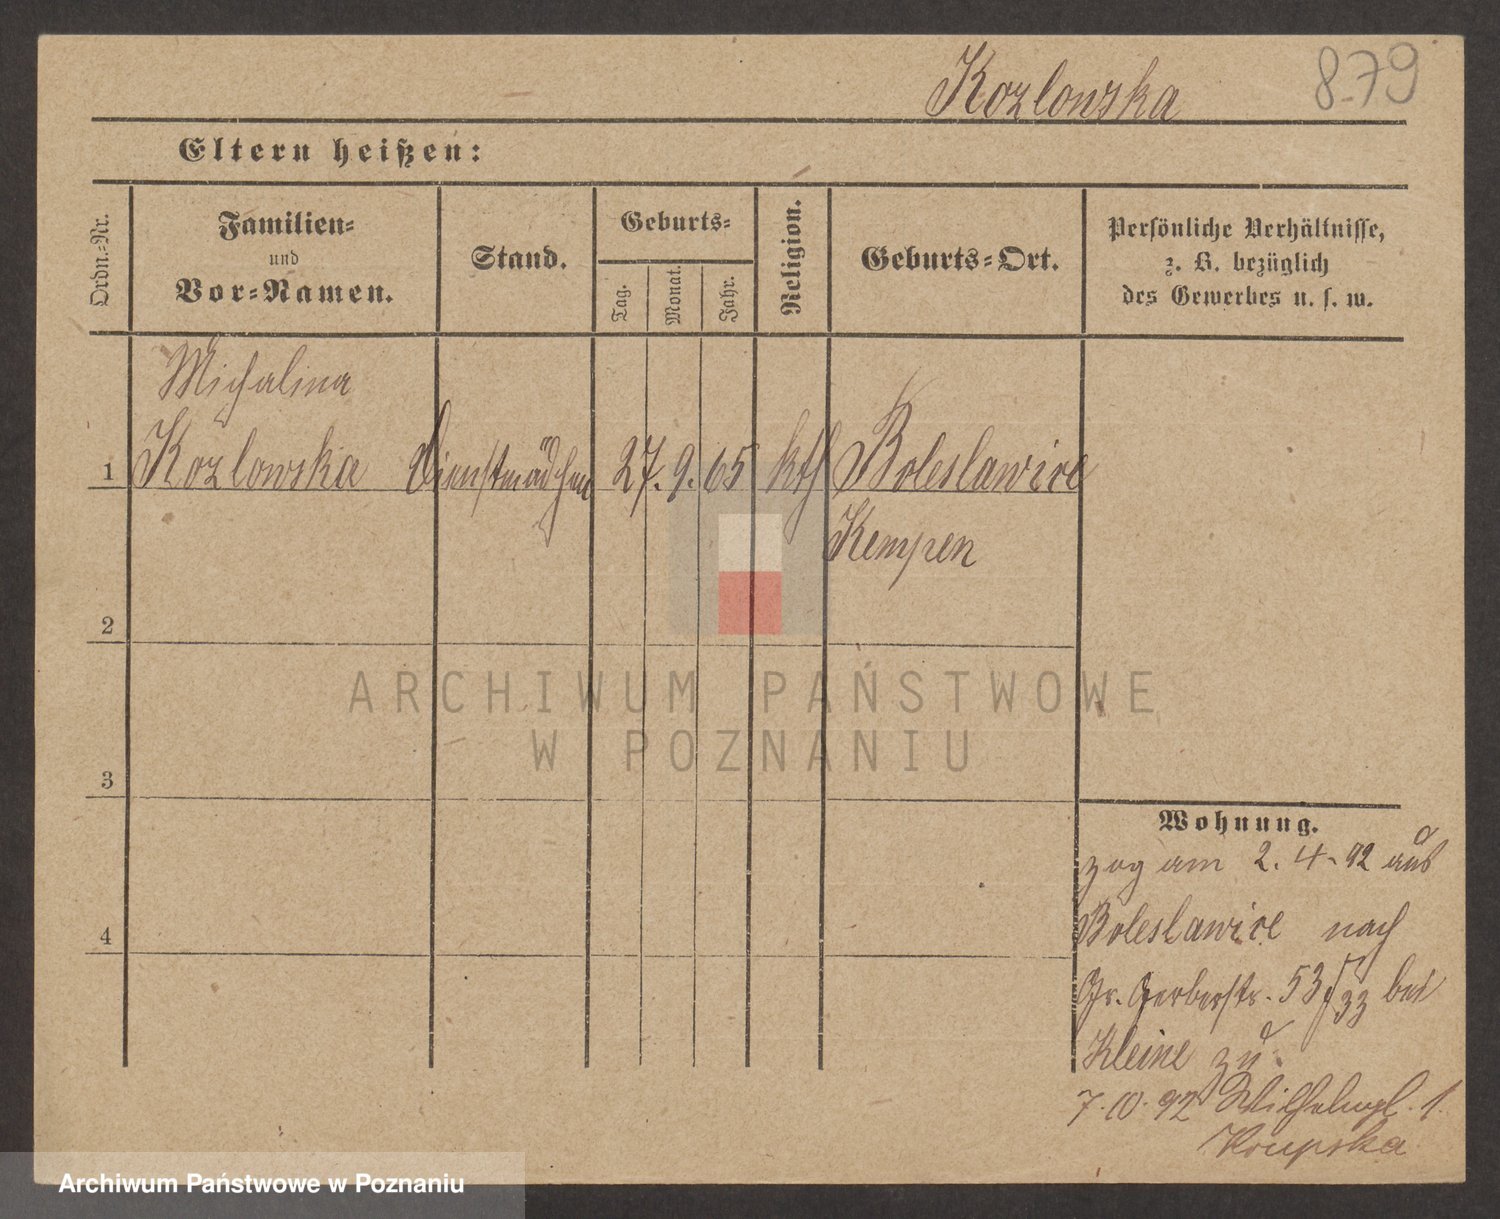 Kozlowska
879
Eltern heißen:
Ordn.=Nr.
Familien=
und
Vor=Namen.
Stand.
Geburts=
Tag.
Monat.
Jahr.
Religion.
Geburts=Ort.
Persönliche Verhältnisse,
z. B. bezüglich
des Gewerbes u. s. w.
Michalina
1 Kozlowska Dienstmädchen 27. 9. 65 kth Boleslawice
Kempen
2
3
4
ARCHIWUM PAŃSTWOWE
W POZNANIU
Wohnung.
zog am 2. 4. 92 aus
Boleslawice nach
Gr. Gerberstr. 53 bei
Kleine zu.
7. 10. 92 Wilhelmpl. 1.
Krupska
Archiwum Państwowe w Poznaniu